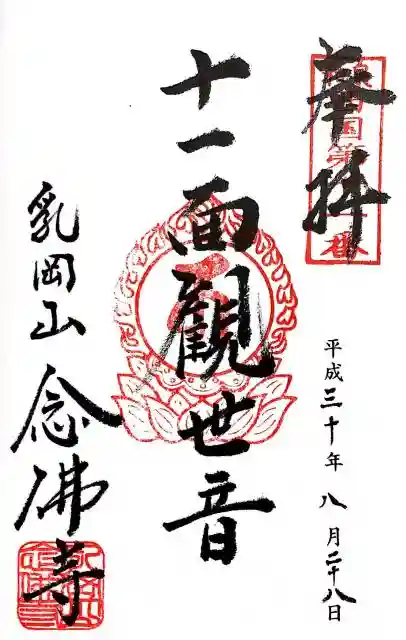 奉拝
平成三十年八月二十八日
十一面観世音
乳岡山
念佛寺